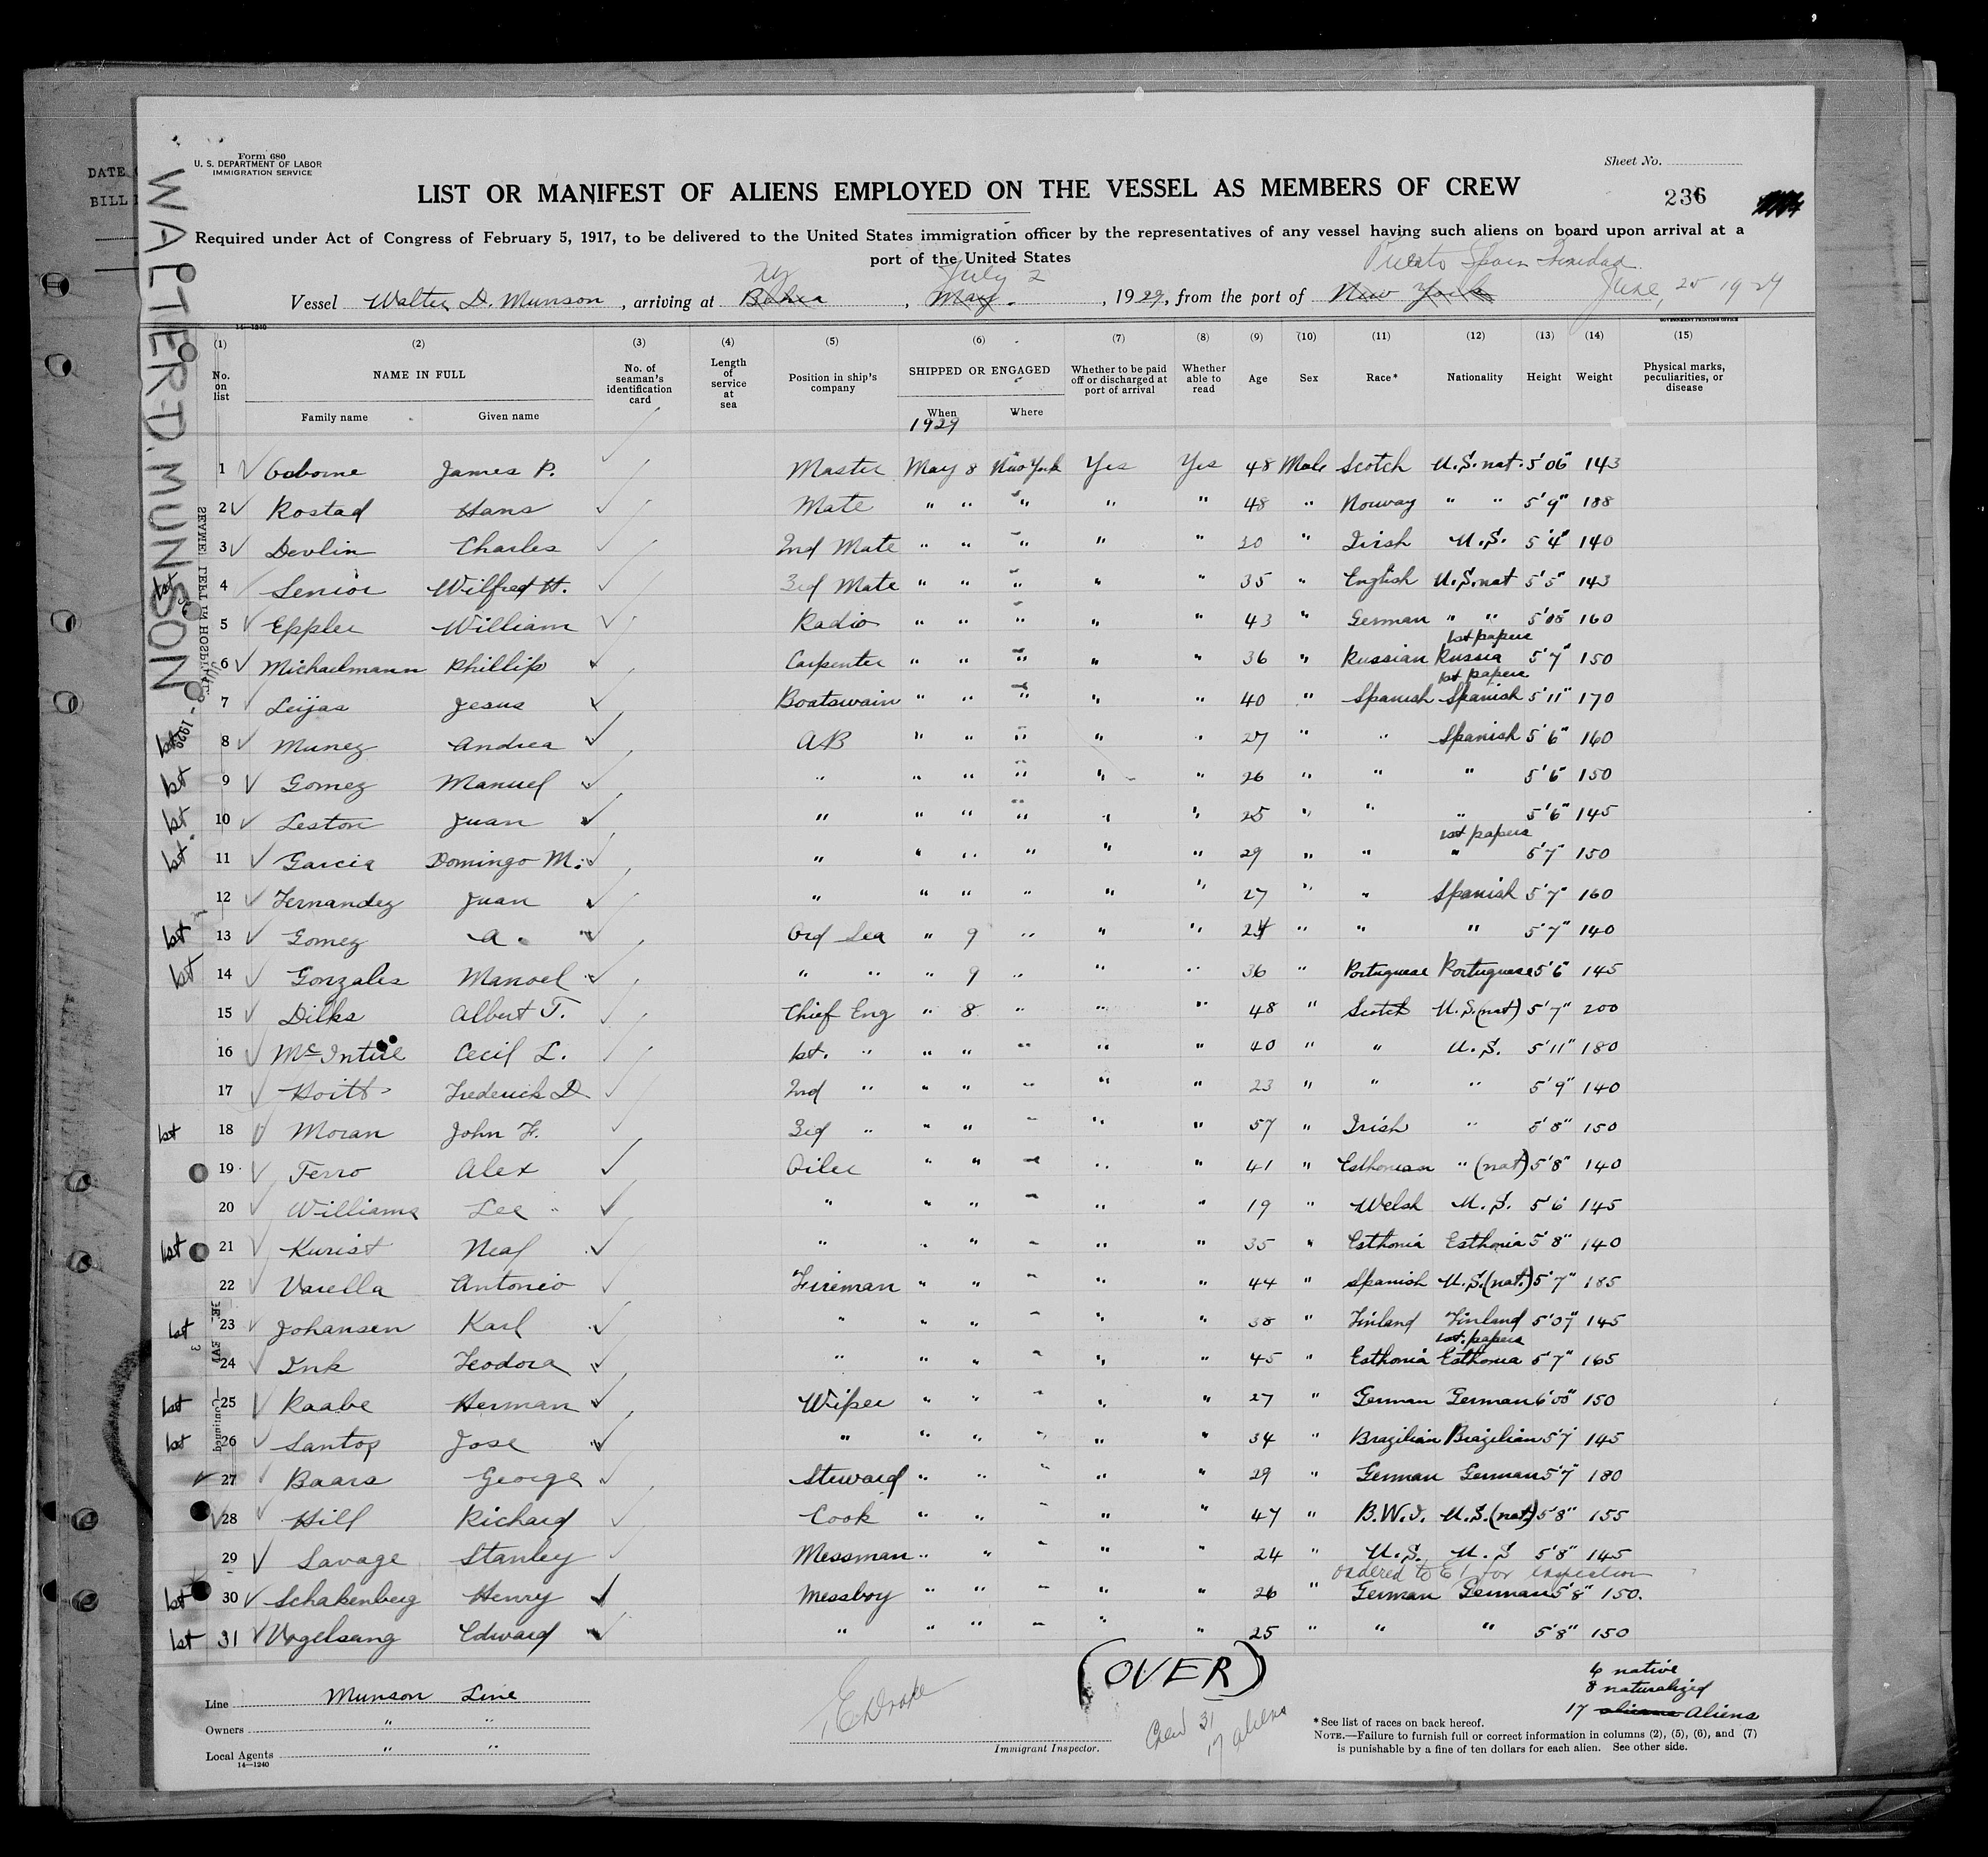 Form 680
U. S. DEPARTMENT OF LABOR
IMMIGRATION SERVICE
Sheet No.
LIST OR MANIFEST OF ALIENS EMPLOYED ON THE VESSEL AS MEMBERS OF CREW
236
Required under Act of Congress of February 5, 1917, to be delivered to the United States immigration officer by the representatives of any vessel having such aliens on board upon arrival at a
port of the United States
NY July 2 Puerto Spain Trinidad
Vessel Walter D. Munson, arriving at Bahia, May., 1929, from the port of New York June 25 1929
14—1240
GOVERNMENT PRINTING OFFICE
(1) (2) (3) (4) (5) (6) (7) (8) (9) (10) (11) (12) (13) (14) (15)
No. on list NAME IN FULL Family name Given name No. of seaman's identification card Length of service at sea Position in ship's company SHIPPED OR ENGAGED When Where Whether to be paid off or discharged at port of arrival Whether able to read Age Sex Race* Nationality Height Weight Physical marks, peculiarities, or disease
1929
1 Osborne James P. Master May 8 New York Yes Yes 48 Male Scotch U.S. nat. 5'06 143
2 Rostad Hans Mate " " " " " 48 " Norway " " 5'9" 188
3 Devlin Charles 2nd Mate " " " " " 20 " Irish U.S. 5'4" 140
1st 4 Senior Wilfred H. 3rd Mate " " " " " 35 " English U.S. nat 5'5" 143
5 Eppler William Radio " " " " " 43 " German " " 5'08 160
1st papers
6 Michaelmann Phillip Carpenter " " " " " 36 " Russian Russia 5'7" 150
1st papers
7 Leijas Jesus Boatswain " " " " " 40 " Spanish Spanish 5'11" 170
1st 8 Munez Andrea AB " " " " " 27 " " Spanish 5'6" 160
1st 9 Gomez Manuel " " " " " " 26 " " " 5'6" 150
1st 10 Leston Juan " " " " " " 25 " " " 5'6" 145
1st papers
1st 11 Garcia Domingo M. " " " " " " 29 " " " 5'7" 150
12 Fernandez Juan " " " " " " 27 " " Spanish 5'7" 160
1st 13 Gomez A. Ord Sea " 9 " " " 24 " " " 5'7" 140
1st 14 Gonzales Manoel " " " 9 " " " 36 " Portuguese Portuguese 5'6" 145
15 Dilks Albert T. Chief Eng " 8 " " " 48 " Scotch U.S. (nat) 5'7" 200
16 McIntire Cecil L. 1st. " " " " " " 40 " " U.S. 5'11" 180
17 Hoitt Frederick D 2nd " " " " " " 23 " " " 5'9" 140
1st 18 Moran John F. 3rd " " " " " " 57 " Irish " 5'8" 150
19 Ferro Alex Oiler " " " " " 41 " Esthonian " (nat) 5'8" 140
20 Williams Lee " " " " " " 19 " Welsh U.S. 5'6 145
1st 21 Kurist Neal " " " " " " 35 " Esthonia Esthonia 5'8" 140
22 Varella Antonio Fireman " " " " " 44 " Spanish U.S. (nat.) 5'7" 185
1st 23 Johansen Karl " " " " " " 38 " Finland Finland 5'07 145
1st. papers
24 Ink Teodora " " " " " " 45 " Esthonia Esthonia 5'7" 165
1st 25 Raabe Herman Wiper " " " " " 27 " German German 6'00" 150
1st 26 Santos Jose " " " " " " 34 " Brazilian Brazilian 5'7 145
27 Baars George Steward " " " " " 29 " German German 5'7" 180
28 Hill Richard Cook " " " " " 47 " B.W.I. U.S. (nat) 5'8" 155
29 Savage Stanley Messman " " " " " 24 " U.S. U.S 5'8" 145
ordered to E I for inspection
1st 30 Schakenberg Henry Messboy " " " " " 26 " German German 5'8" 150.
1st 31 Vogelsang Edward " " " " " " 25 " " " 5'8" 150
WALTER D. MUNSON
Continued
DATE
BILL
Line Munson Line
Owners " "
Local Agents " "
14—1240
Immigrant Inspector.
(OVER)
Crew 31
17 aliens
6 native
8 naturalized
17 aliens Aliens
*See list of races on back hereof.
NOTE.—Failure to furnish full or correct information in columns (2), (5), (6), and (7)
is punishable by a fine of ten dollars for each alien. See other side.